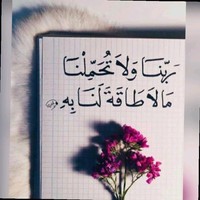 رَبَّنَا وَلَا تُحَمِّلْنَا
مَالَا طَاقَةَ لَنَا بِهِ